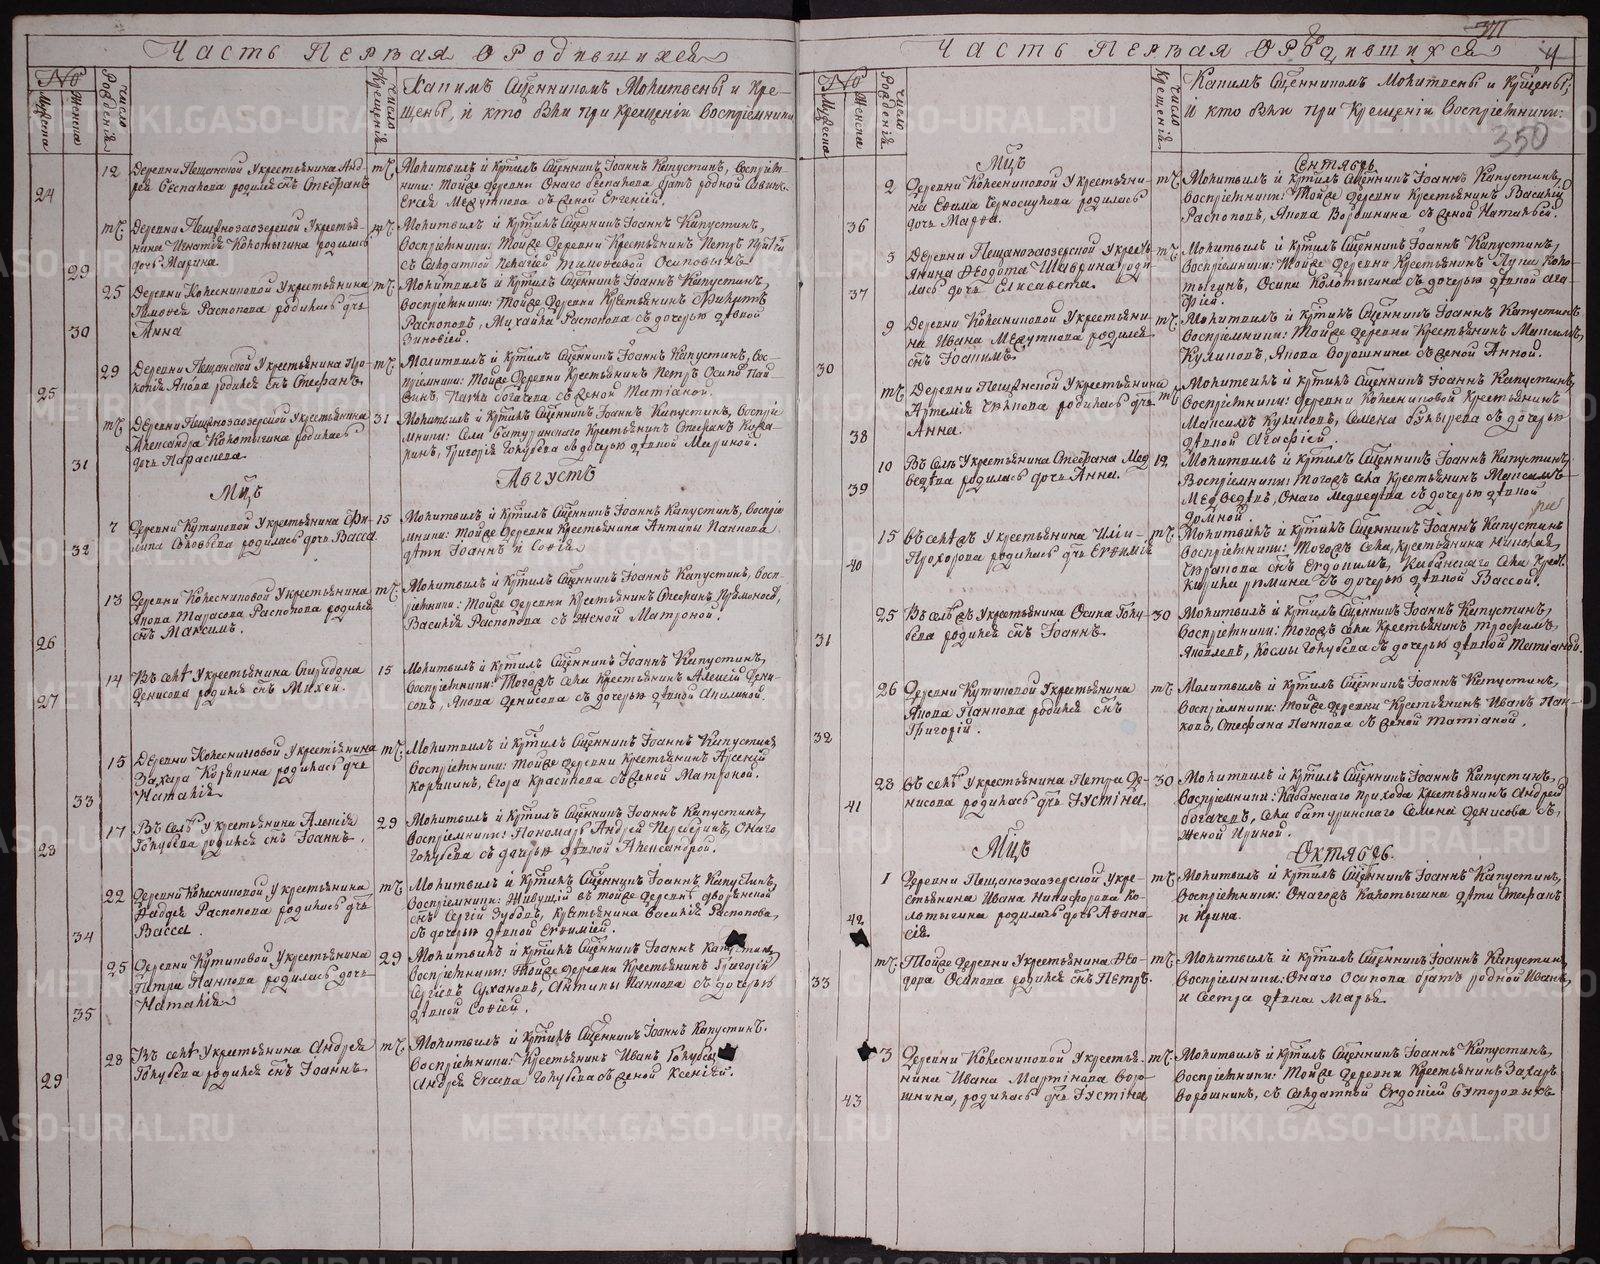 Часть Первая о Родившихся
№
Мужеска
Женска
Число Рождения
Число Крещения
Каким Священником Молитвены и Кре-
щены, и кто были при Крещении Восприемники
24
12
Деревни Пещанской У крестьянина Анд-
рея родился сын Стефан
тч.
Молитвил и Крестил Священник Иоанн Капустин, Восприем-
ники: Тойже деревни Онаго брат родной
с женой Евгенией.
29
тч.
Деревни Пещанозаозерской У крестья-
нина Игнатия Колотыгина родилась
дочь Марина
тч.
Молитвил и Крестил Священник Иоанн Капустин,
Восприемники: Тойже Деревни Крестьянин Петр
с Солдатской Пелагией Тимофеевой Осиповых
30
25
Деревни Колесниковой У крестьянина
Тимофея Распопова родилась дочь
Анна
тч.
Молитвил и Крестил Священник Иоанн Капустин,
Восприемники: Тойже Деревни Крестьянин Филипп
Распопов, Михайла Распопова с дочерью девкой
Зиновией.
25
29
Деревни Пещанской У крестьянина Про-
копия Попова родился сын Стефан.
тч.
Молитвил и Крестил Священник Иоанн Капустин, Вос-
приемники: Тойже Деревни Крестьянин Петр Осипов
Богачева с женой Татианой.
31
тч.
Деревни Пещанозаозерской У крестьянина
Александра Колотыгина родилась
дочь Параскева.
31
Молитвил и Крестил Священник Иоанн Капустин, Восприе-
мники: Села Батуринскаго Крестьянин Стефан
Григория Голубева с дочерью девкой Мариной.
Мць
Август
32
7
Деревни Кутиковой У крестьянина Фи-
липа Соловьева родилась дочь Васса
15
Молитвил и Крестил Священник Иоанн Капустин, Восприе
мники: Тойже Деревни Крестьянина Антипы Панкова
дети Иоанн и София
26
13
Деревни Колесниковой У крестьянина
Якова Тарасова Распопова родился
сын Максим.
тч.
Молитвил и Крестил Священник Иоанн Капустин, Восп-
риемники: Тойже деревни Крестьянин Стефан Прямоносов,
Василия Распопова с женой Матроной.
27
14
В селе У крестьянина Спиридона
Денисова родился сын Михей.
15
Молитвил и Крестил Священник Иоанн Капустин,
Восприемники: Тогож Села Крестьянин Алексей Дени-
сов, Якова Денисова с дочерью девкой Акилиной.
33
15
Деревни Колесниковой У крестьянина
Захара Корякина родилась дочь
Наталия
тч.
Молитвил и Крестил Священник Иоанн Капустин,
Восприемники: Тойже деревни Крестьянин Арсений
Корякин, Егора Красикова с женой Матроной.
28
17
В Селе У крестьянина Алексия
Голубева родился сын Иоанн.
29
Молитвил и Крестил Священник Иоанн Капустин,
Восприемники: Пономарь Андрей Онаго
Голубева с дочерью девкой Александрой.
34
22
Деревни Колесниковой У крестьянина
Фаддея Распопова родилась дочь
Васса.
тч.
Молитвил и Крестил Священник Иоанн Капустин,
Восприемники: Живущий в тойже деревне дворянской
сын Сергий Зубов, Крестьянина Василия Распопова,
с дочерью девкой Евфимией.
35
25
Деревни Кутиковой У крестьянина
Петра Панкова родилась дочь
Наталия
29
Молитвил и Крестил Священник Иоанн Капустин,
Восприемники: Тойже деревни Крестьянин Григорий
Сергиев Суханов, Антипы Панкова с дочерью
девкой Софией.
29
28
В селе У крестьянина Андрея
Голубева родился сын Иоанн
тч.
Молитвил и Крестил Священник Иоанн Капустин.
Восприемники: Крестьянин Иван Голубев,
Андрея Голубева с женой Ксенией.
Часть Первая о Родившихся
371
4
350
№
Мужеска
Женска
Число Рождения
Число Крещения
Каким Священником Молитвены и Крещены;
и кто были при Крещении Восприемники:
Мць
Сентябрь
36
2
Деревни Колесниковой У крестьяни-
на Ефима Черноскутова родилась
дочь Марфа.
тч.
Молитвил и Крестил Священник Иоанн Капустин,
Восприемники: Тойже Деревни Крестьянин Василий
Распопов, Якова Ворошнина с женой Натальей.
37
3
Деревни Пещанозаозерской У кресть
янина Федота Шаврина роди
лась дочь Елисавета.
тч.
Молитвил и Крестил Священник Иоанн Капустин,
Восприемники: Тойже деревни Крестьянин Лука Коло-
тыгин, Осипа Колотыгина с дочерью девкой Ага-
фией.
30
9
Деревни Колесниковой У крестьяни
на Ивана Межуткова родился
сын Иоаким.
тч.
Молитвил и Крестил Священник Иоанн Капустин
Восприемники: Тойже Деревни Крестьянин Максим
Куликов, Якова Ворошнина с женой Анной.
38
тч.
Деревни Пещанской У крестьянина
Артемия родилась дочь
Анна.
тч.
Молитвил и Крестил Священник Иоанн Капустин,
Восприемники: Деревни Колесниковой Крестьянин
Максим Куликов, Семена Букырева с дочерью
девкой Агафией.
39
10
В Селе У крестьянина Стефана Мед
ведева родилась дочь Анна.
12
Молитвил и Крестил Священник Иоанн Капустин,
Восприемники: Тогож Села Крестьянин Максим
Медведев, Онаго Медведева с дочерью девкой
Домной.
40
15
В селе У крестьянина Илии
Прохорова родилась дочь Евфимия
тч.
Молитвил и Крестил Священник Иоанн Капустин
Восприемники: Тогож Села, крестьянина Николая
сын Евдоким, Кабанскаго Села Крест.
Кирила с дочерью девкой Вассой.
31
25
В Селе У крестьянина Осипа Голу-
бева родился сын Иоанн.
30
Молитвил и Крестил Священник Иоанн Капустин,
Восприемники: Тогож Села Крестьянин Трофим
Яковлев, Космы Голубева с дочерью девкой Татианой.
32
26
Деревни Кутиковой У крестьянина
Якова Панкова родился сын
Григорий.
тч.
Молитвил и Крестил Священник Иоанн Капустин,
Восприемники: Тойже деревни Крестьянин Иван Пан-
ков, Стефана Панкова с женой Татианой.
41
28
В селе У крестьянина Петра Де-
нисова родилась дочь Иустина.
30
Молитвил и Крестил Священник Иоанн Капустин,
Восприемники: Кабанскаго прихода Крестьянин Андрей
Богачев, Села Батуринскаго Семена Денисова с
женой Ириной.
Мць
Октябрь.
42
1
Деревни Пещанозаозерской У кре-
стьянина Ивана Никифорова Ко-
лотыгина родилась дочь Афана-
сия.
тч.
Молитвил и Крестил Священник Иоанн Капустин,
Восприемники: Онагож Колотыгина дети Стефан
и Ирина.
33
тч.
Тойже Деревни У крестьянина Фео-
дора Осипова родился сын Петр.
тч.
Молитвил и Крестил Священник Иоанн Капустин,
Восприемники: Онаго Осипова брат родной Иван,
и Сестра девка Марья.
43
3
Деревни Колесниковой У крестья-
нина Ивана Мартинова Воро-
шнина, родилась дочь Иустина
тч.
Молитвил и Крестил Священник Иоанн Капустин,
Восприемники: Тойже Деревни Крестьянин Захар
Ворошнин, с Солдатской Евдокией Второвых
METRIKI.GASO-URAL.RU